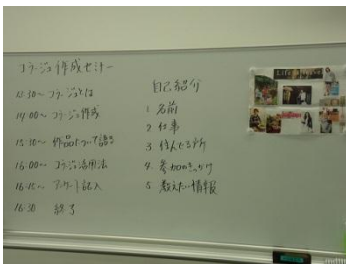 コラージュ作成セミナー
13:30～ コラージュとは
14:00～ コラージュ作成
15:10～ 作品について語る
16:00～ コラージュ活用法
16:15～ アンケート記入
16:30 終了
自己紹介
1. 名前
2. 仕事
3. 住んでる所
4. 参加のきっかけ
5. 教えたい情報
Life is